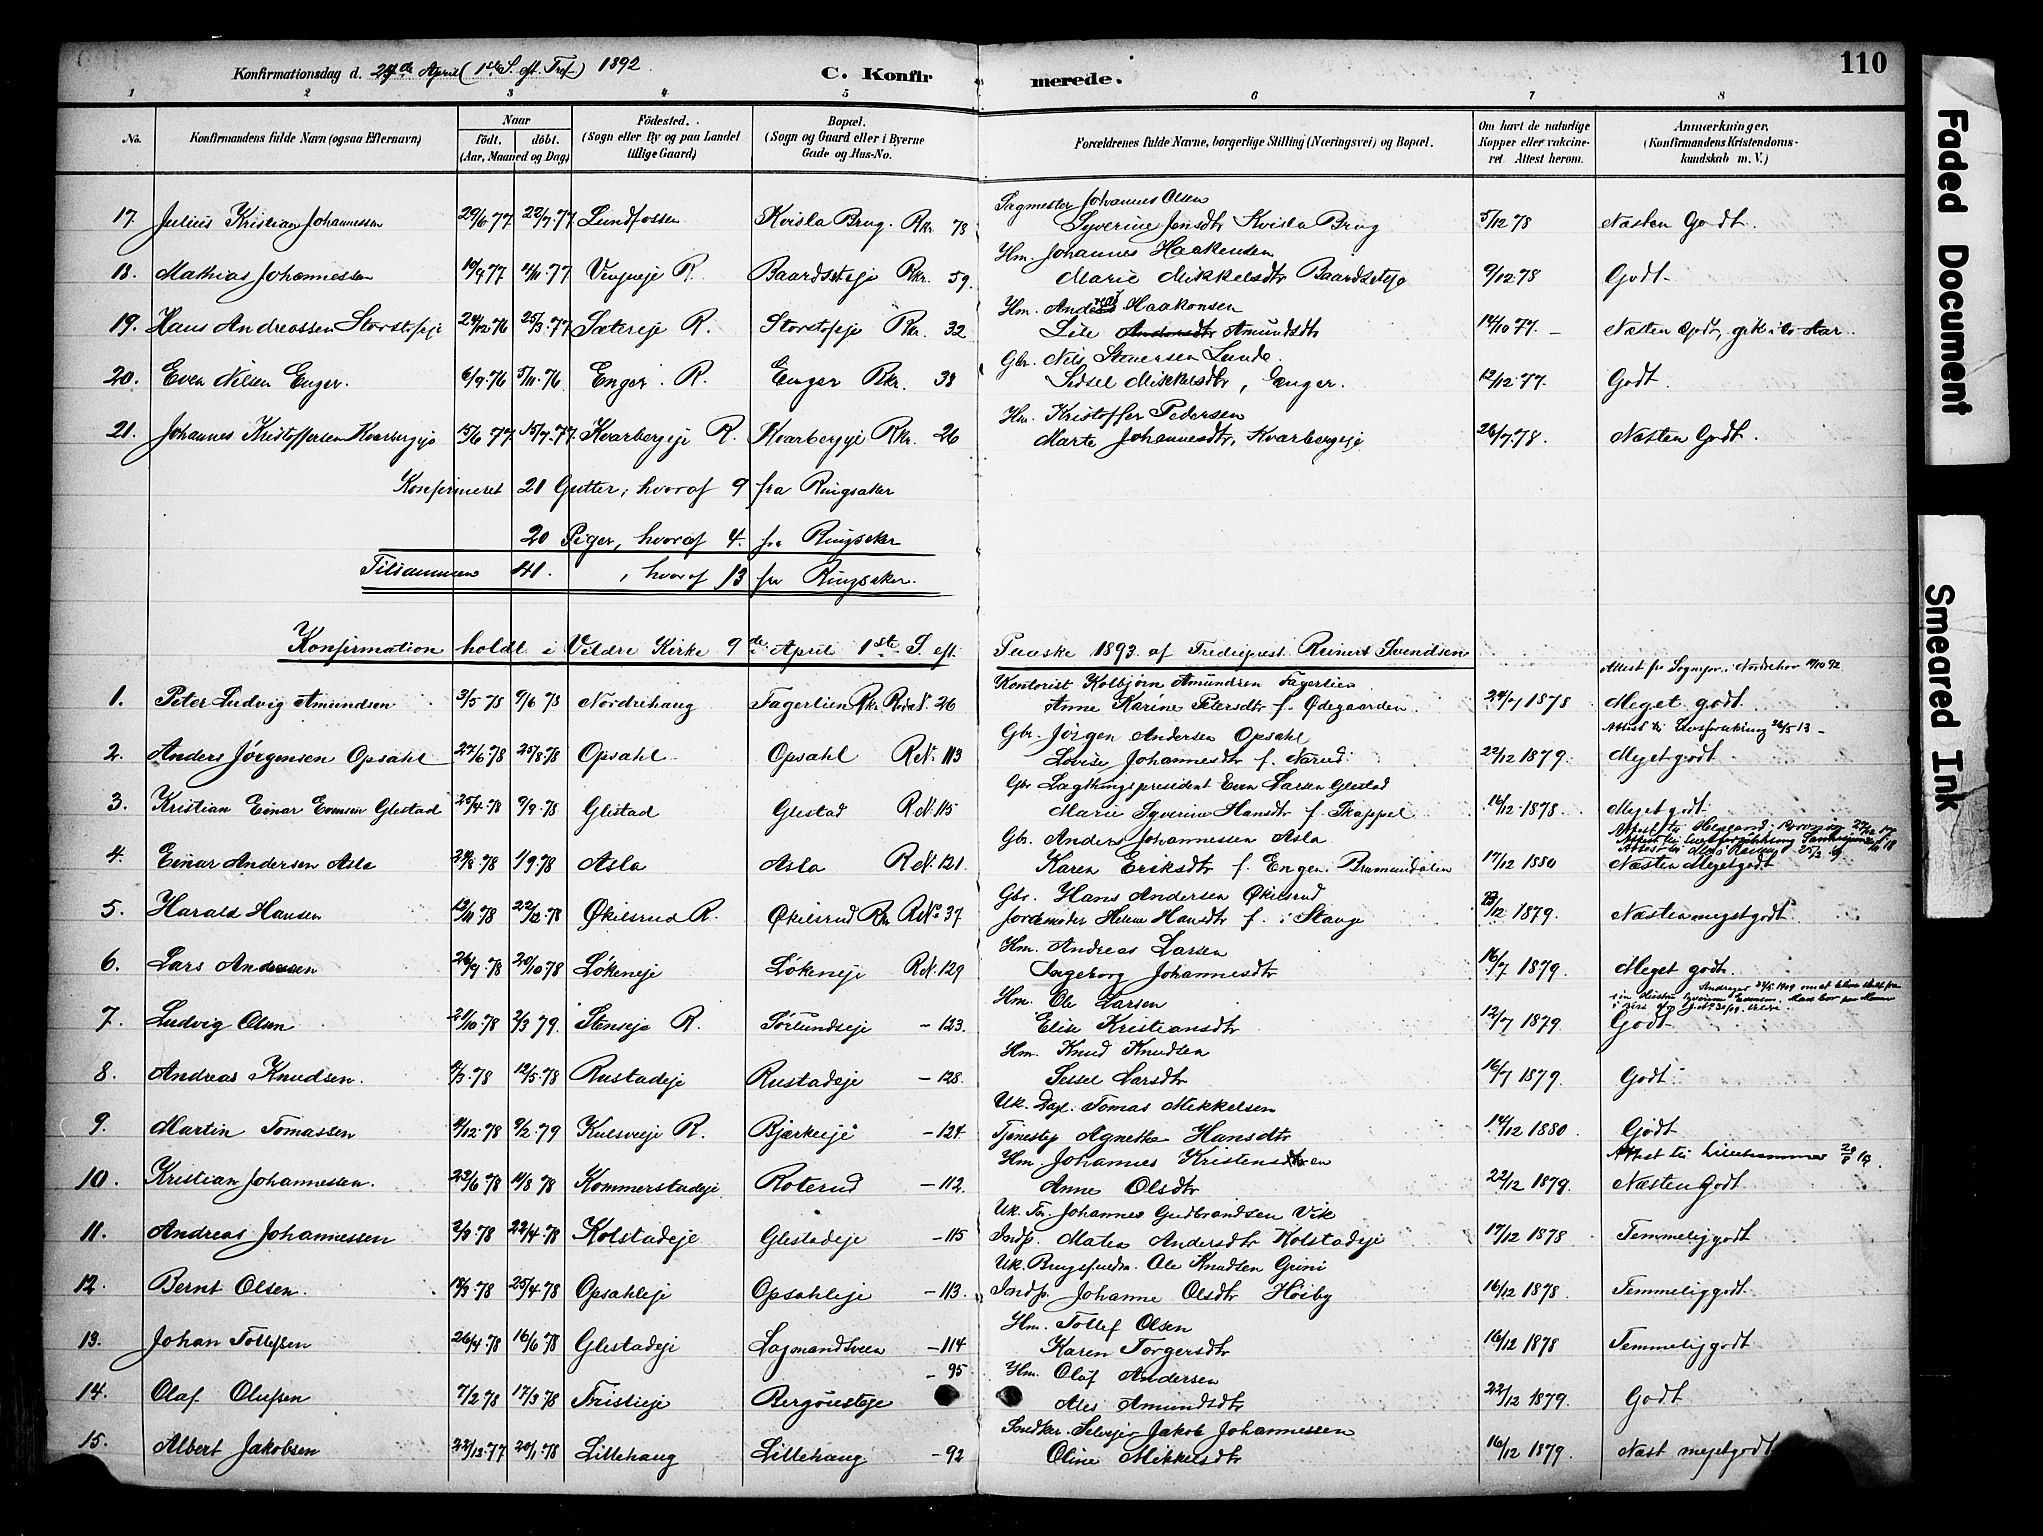 110
Konfirmationsdag d. 24de April (1ste S. eft. Tref.) 1892.
C. Konfirmerede.
1 2 3 4 5 6 7 8
No. Konfirmandens fulde Navn (ogsaa Efternavn) Naar født. døbt. (Aar, Maaned og Dag) Fødested. (Sogn eller By og paa Landet tillige Gaard) Bopæl. (Sogn og Gaard eller i Byerne Gade og Hus-No. Forældrenes fulde Navne, borgerlige Stilling (Næringsvei) og Bopæl. Om havt de naturlige Kopper eller vakcineret. Attest herom. Anmærkninger. (Konfirmandens Kristendomskundskab m. V.)
Sagmester Johannes Olsen
17. Julius Kristian Johannessen 29/6 77 22/7 77 Lundfossen Kvisla Brug. Rkr. 78 Syverine Jensdtr Kvisla Brug 5/12 78 Næsten Godt.
Hm. Johannes Haakensen
18. Mathias Johannessen 19/9 77 11/11 77 Vingneje R. Baardseteje Rkr. 59. Marie Mikkelsdtr Baardseteje 9/12 78 Godt.
Hm. Andreas Haakonsen
19. Hans Andreassen Storstofeje 24/12 76 25/3 77 Sætereje R. Storstofeje Rkr. 32 Lise Andersdtr Amundsdtr 14/10 77. Næsten Godt, gik i to Aar.
Gbr. Nils Stenersen Lunde.
20. Even Nilsen Enger. 6/9 76 5/11 76 Enger. R. Enger Rkr. 38 Sidsel Mikkelsdtr, Enger. 12/12 77. Godt.
Hm. Kristoffer Pedersen
21. Johannes Kristoffersen Kvarbergeje 15/6 77 15/7 77 Kvarbergeje R. Kvarbergeje Rkr. 26 Marte Johannesdtr, Kvarbergeje 26/7 78. Næsten Godt.
Konfirmeret 21 Gutter, hvoraf 9 fra Ringsaker
20 Piger, hvoraf 4. fra Ringsaker
Tilsammen 41. , hvoraf 13 fra Ringsaker.
Konfirmation holdt i Veldre Kirke 9de April 1ste S. eft. Paaske 1893 af Sognepræst Reinert Svendsen
Attest fr. Sognepr. i Nordrehov 19/10 92
Kontorist Kolbjørn Amundsen Fagerlien
1. Peter Ludvig Amundsen 3/5 78 9/6 78 Nordrehaug Fagerlien Rkr. Rode N. 26 Anne Karine Petersdtr f. Ødegaarden 24/7 1878 Meget godt.
Gbr. Jørgen Andersen Opsahl Attest til Livsforsikring 26/5 13
2. Anders Jørgensen Opsahl 27/6 78 25/8 78 Opsahl Opsahl R.N. 113 Lovise Johannesdtr f. Narud 22/12 1879. Meget godt
Gbr Lagthingspresident Even Larsen Glestad
3. Kristian Einar Evensen Glestad 25/4 78 9/9 78 Glestad Glestad R.N. 115 Marie Syverine Hansdtr f. Skappel 16/12 1878 Meget godt
Gbr. Anders Johannessen Asla
4. Einar Andersen Asla 1/9 78 Asla Asla R.N. 121. Karen Eriksdtr f. Enger Brumundalen 17/12 1880 Næsten Meget godt
Gbr. Hans Andersen Økilsrud
5. Harald Hansen 12/11 78 22/12 78 Økilsrud R. Økilsrud Rkr R.No 37 Jordemoder Helene Hansdtr f. i Stange 23/12 1879. Næsten meget godt.
Hm. Andreas Larsen
6. Lars Andersen 26/9 78 20/10 78 Løkeneje Løkeneje R.N. 129 Ingeborg Johannesdtr 16/7 1879. Meget godt.
Hm. Ole Larsen
7. Ludvig Olsen 21/10 78 2/3 79. Stenseje R. Sørlundseje - 123. Elise Kristiansdtr 12/7 1879. Godt
Hm. Knud Knudsen
8. Andreas Knudsen. 4/3 78 12/5 78 Rustadeje Rustadeje - 128. Sessel Larsdtr 16/7 1879. Godt
Uk. Dagl. Tomas Mikkelsen
9. Martin Tomassen 4/12 78 9/2 79 Kulsveeje R. Bjerkeeje - 124. Tjenestep. Agnethe Hansdtr 14/12 1880. Godt
Hm Johannes Kristensen Attest til Lillehammer
10. Kristian Johannessen. 23/6 78 11/8 78 Kommerstadeje Roterud - 112. Anne Olsdtr 22/12 1879. Næsten godt
Uk. Johannes Gudbrandsen Vik
11. Andreas Johannessen 2/3 78 22/4 78 Kolstadeje Glestadeje - 115 Indp. Matea Andersdtr Kolstadeje 17/12 1878 Temmelig godt
Uk. Ole Knudsen Grini
12. Bernt Olsen. 12/3 78 25/4 78 Opsahleje Opsahleje - 113. Indp. Johanne Olsdtr Høiby 16/12 1878. Temmelig godt
Hm. Tollef Olsen
13. Johan Tollefsen 26/4 78 16/6 78 Glestadeje Lagmandsveen - 114 Karen Torgersdtr 16/12 1878 Temmelig godt
- 95 Hm. Oluf Andersen
14. Olaf Olufsen 7/2 78 17/3 78 Fristieje Bergousteje Ales Amundsdtr 22/12 1879. Godt
Selvejer Jakob Johannessen
15. Albert Jakobsen 22/12 77 20/1 78 Lillehaug Lillehaug - 92 Oline Mikkelsdtr 16/12 1879. Næst. meget godt
Faded Document
Smeared Ink